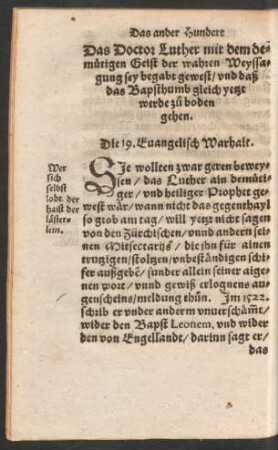 Das ander Hundert
Das Doctor Luther mit dem de⸗
mütigen Geist der wahren Weyssa⸗
gung sey begabt gewest/ vnd daß
das Bapsthumb gleich yetzt
werde zů boden
gehen.
Die 19. Euangelisch Warhait.
Wer
sich
selbst
lobt der
haißt der
läster⸗
lein.
SIe wollten zwar geren bewey⸗
sen/ das Luther ain demüti⸗
ger/ vnd heiliger Prophet ge⸗
west wär/ wann nicht das gegenthayl
so grob am tag/ will yetzt nicht sagen
von den Zürchischen/ vnnd andern sei⸗
nen Mitsectarijs/ die jhn für ainen
trutzigen/ stoltzen/ vnbeständigen schi⸗
fer außgebẽ/ sunder allein seiner aige⸗
nen wort/ vnnd gewiß erlognens au⸗
genscheins/ meldung thůn. Im 1522.
schrib er vnder anderm vnuerschämt/
wider den Bapst Leonem, vnd wider
den von Engellandt/ darinn sagt er/
das